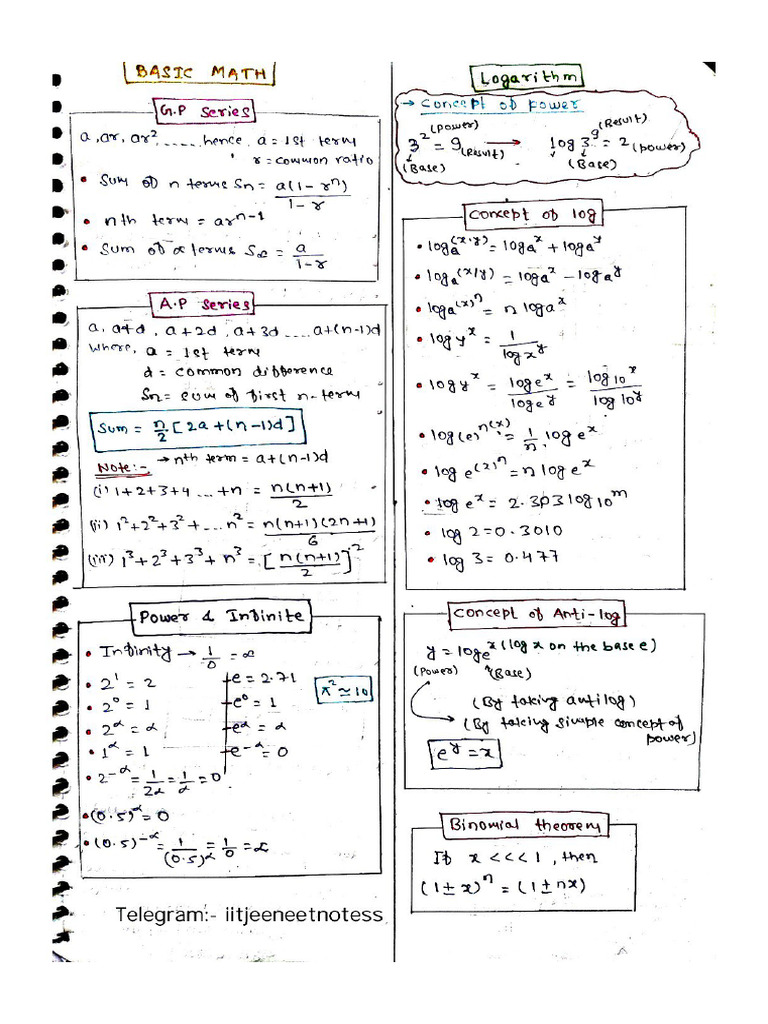 BASIC MATH
G.P series
a, ar, ar², ...... hence, a = 1st term
r = common ratio
• Sum of n terms Sn = a(1 - rⁿ) / 1 - r
• nth term = arⁿ⁻¹
• Sum of ∝ terms S∞ = a / 1 - r
A.P series
a, a+d, a+2d, a+3d ..... a+(n-1)d
Where, a = 1st term
d = common difference
Sn = sum of first n-term
Sum = n/2 [2a+(n-1)d]
Note:- → nth term = a+(n-1)d
(i) 1+2+3+4 ...+n = n(n+1) / 2
(ii) 1²+2²+3²+... n² = n(n+1)(2n+1) / 6
(iii) 1³+2³+3³+n³ = [n(n+1) / 2]²
Power & Infinite
• Infinity → 1/0 = ∝
• 2¹ = 2
• 2⁰ = 1
• 2^∝ = ∝
• 1^∝ = 1
• 2^-∝ = 1/2∝ = 1/∝ = 0
• (0.5)^∝ = 0
• (0.5)^-∝ = 1/(0.5)^∝ = 1/0 = ∝
e = 2.71
e⁰ = 1
e^∝ = ∝
e^-∝ = 0
π² ≃ 10
Telegram:- iitjeeneetnotess
Logarithm
→ Concept of power
3² (power) = 9 (Result) → log 3^9 (Result) = 2 (power)
(Base) (Base)
Concept of log
• log a^(x.y) = log a^x + log a^y
• log a^(x/y) = log a^x - log a^y
• log a^(x)^n = n log a^x
• log y^x = 1 / log x^y
• log y^x = log e^x / log e^y = log 10^x / log 10^y
• log(e)^n(x) = 1/n log e^x
• log e^(x)^n = n log e^x
• log e^x = 2.303 log 10^m
• log 2 = 0.3010
• log 3 = 0.477
Concept of Anti-log
y = log e^x (log x on the base e)
(Power) (Base)
(By taking antilog)
(By taking simple concept of
power)
e^y = x
Binomial theorem
If x <<< 1, then
(1 ± x)ⁿ = (1 ± nx)